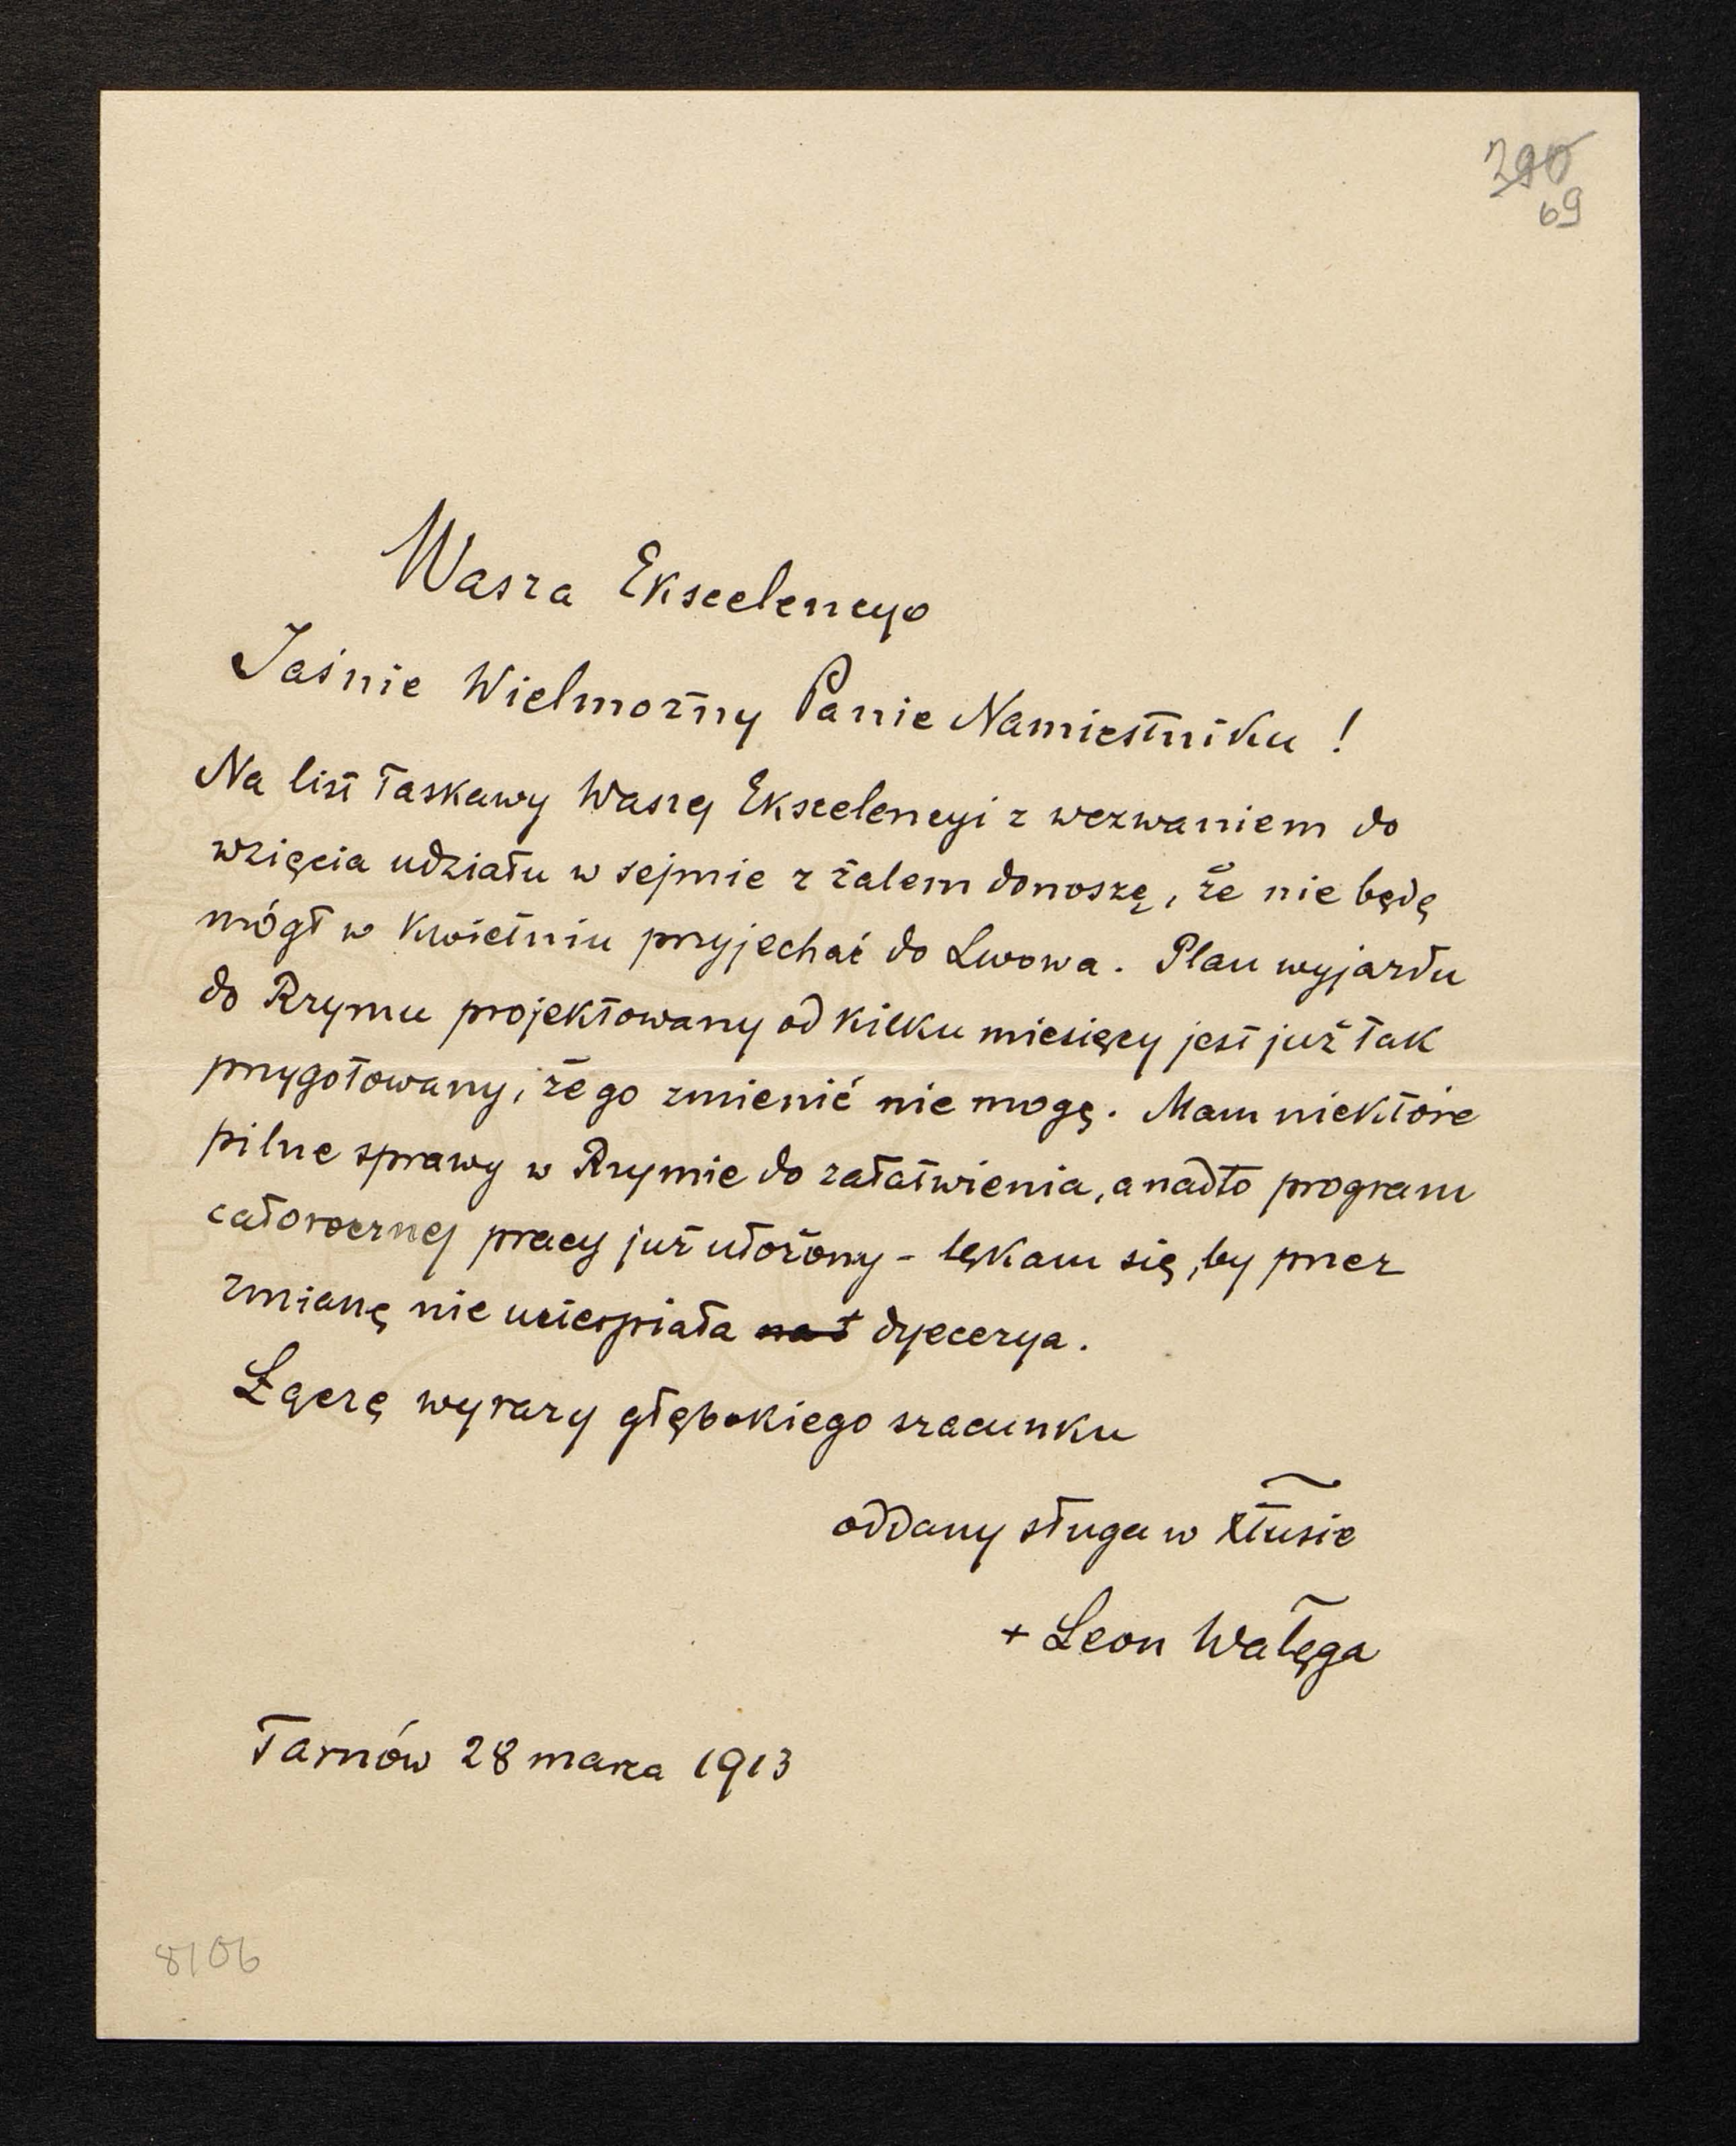 290
69
Wasza Ekscelencyo
Jaśnie Wielmożny Panie Namiestniku !
Na list łaskawy Waszej Ekscelencyi z wezwaniem do
wzięcia udziału w sejmie z żalem donoszę, że nie będę
mógł w kwietniu przyjechać do Lwowa. Plan wyjazdu
do Rzymu projektowany od kilku miesięcy jest już tak
przygotowany, że go zmienić nie mogę. Mam niektóre
pilne sprawy w Rzymie do załatwienia, a nadto program
całorocznej pracy już ułożony - lękam się, by przez
zmianę nie ucierpiała dyecezya.
Łączę wyrazy głębokiego szacunku
oddany sługa w Xtusie
+ Leon Wałęga
Tarnów 28 marca 1913
8106